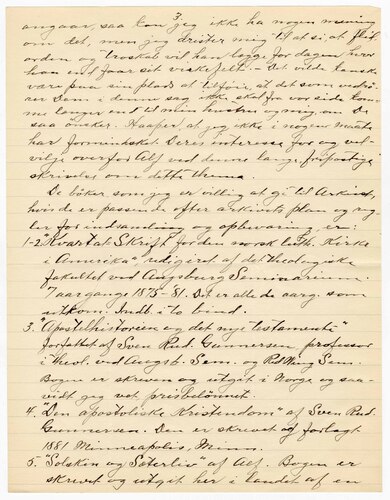 3.
angaar, saa kan jeg ikke ha nogen mening
om det, men jeg drister mig til at si, at flid
orden, og troskab vil han lægge for dagen hvor
han end faar set virkefelt. - Det vilde kanske
være paa sin plads at tilføie, at det som vedrø-
rer Dem i denne sag ikke skal fra vor side kom
me længer end til min hustru og mig, om De
saa ønsker. Haaper, at jeg ikke i nogen maate
har forminsket Deres interesse for og vel-
vilje overfor Alf ved denne lange,
skrivelse om dette thema.
De bøker, som jeg er villig at gi til Arkivet,
hvis de er passende efter arkivets plan og reg
ler for indsamling og opbevaring er:
1-2. "Kvartal Skrift for den norsk luth. Kirke
i Amerika", udgivet af det theologiske
fakultet ved Augsburg Seminarium.
7 aargange 1875-'81. Det er alle de aarg. som
utkom. Indb. i to bind.
3. "Apostelhistorien og det nye testamente"
forfattet af Sven Rud. Gunnersen, professor
i theol. ved Augsb. Sem. og Red Wing Sem.
Bogen er skreven og utgit i Norge og saa-
vidt jeg vet prisbelønnet.
4. "Den apostoliske Kristendom" af Sven Rud.
Gunnersen. Den er skrevet og forlagt
1881 Minneapolis, Minn.
5. "Solskin og Sæterliv" af Alf. Bogen er
skrevet og utgit her i landet af en